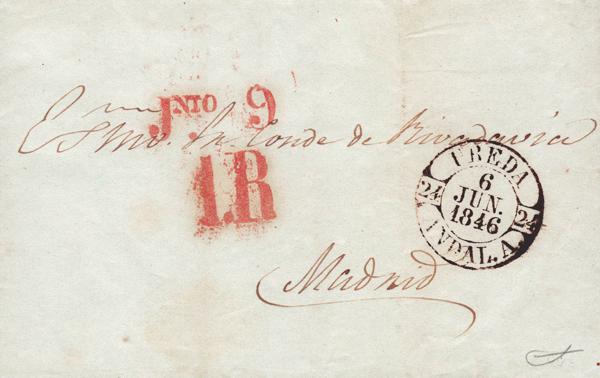 JNTO 9
Exmo. Sr. Conde de Rivadavia
1.R
UBEDA
6
JUN.
1846
24 24
ANDAL.A.
Madrid